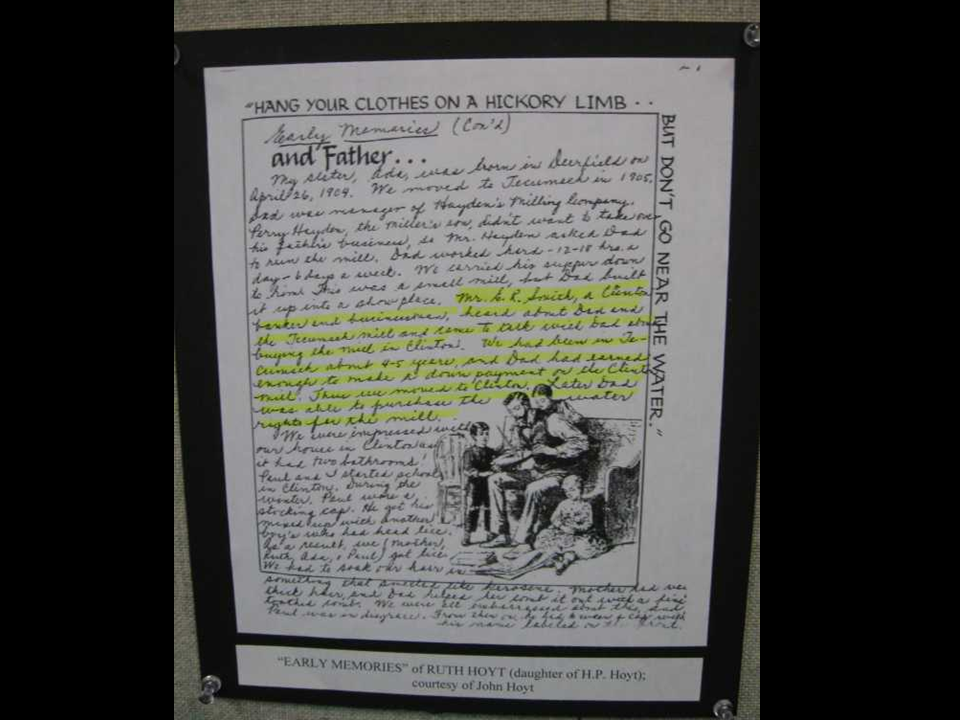 "HANG YOUR CLOTHES ON A HICKORY LIMB . .
BUT DON'T GO NEAR THE WATER."
Early Memories (Con'd)
and Father...
My sister, Ada, was born in Deerfield on
April 26, 1904. We moved to Tecumseh in 1905.
Dad was manager of Hayden's Milling Company.
Perry Hayden, the Miller's son, didn't want to take over
his father's business, so Mr. Hayden asked Dad
to run the mill. Dad worked hard - 12-18 hrs. a
day - 6 days a week. We carried his supper down
to him. This was a small mill, but Dad built
it up into a show place. Mr. S. R. Smith, a Clinton
banker and businessman, heard about Dad and
the Tecumseh mill and came to talk with Dad about
buying the mill in Clinton. We had been in Te-
cumseh about 4-5 years, and Dad had earned
enough to make a down payment on the Clinton
mill. Thus we moved to Clinton. Later Dad
was able to purchase the water
rights for the mill.
We were impressed with
our house in Clinton as
it had two bathrooms!
Paul and I started school
in Clinton. During the
winter, Paul wore a
stocking cap. He got his
mixed up with another
boy's who had head lice.
As a result, we (Mother,
Ruth, Ada, & Paul) got lice.
We had to soak our hair in
something that smelled like kerosene. Mother had
thick hair, and Dad helped her comb it out with a fine
toothed comb. We were all embarrassed about this, and
Paul was in disgrace. From then on, he
his name labeled on
"EARLY MEMORIES" of RUTH HOYT (daughter of H.P. Hoyt);
courtesy of John Hoyt